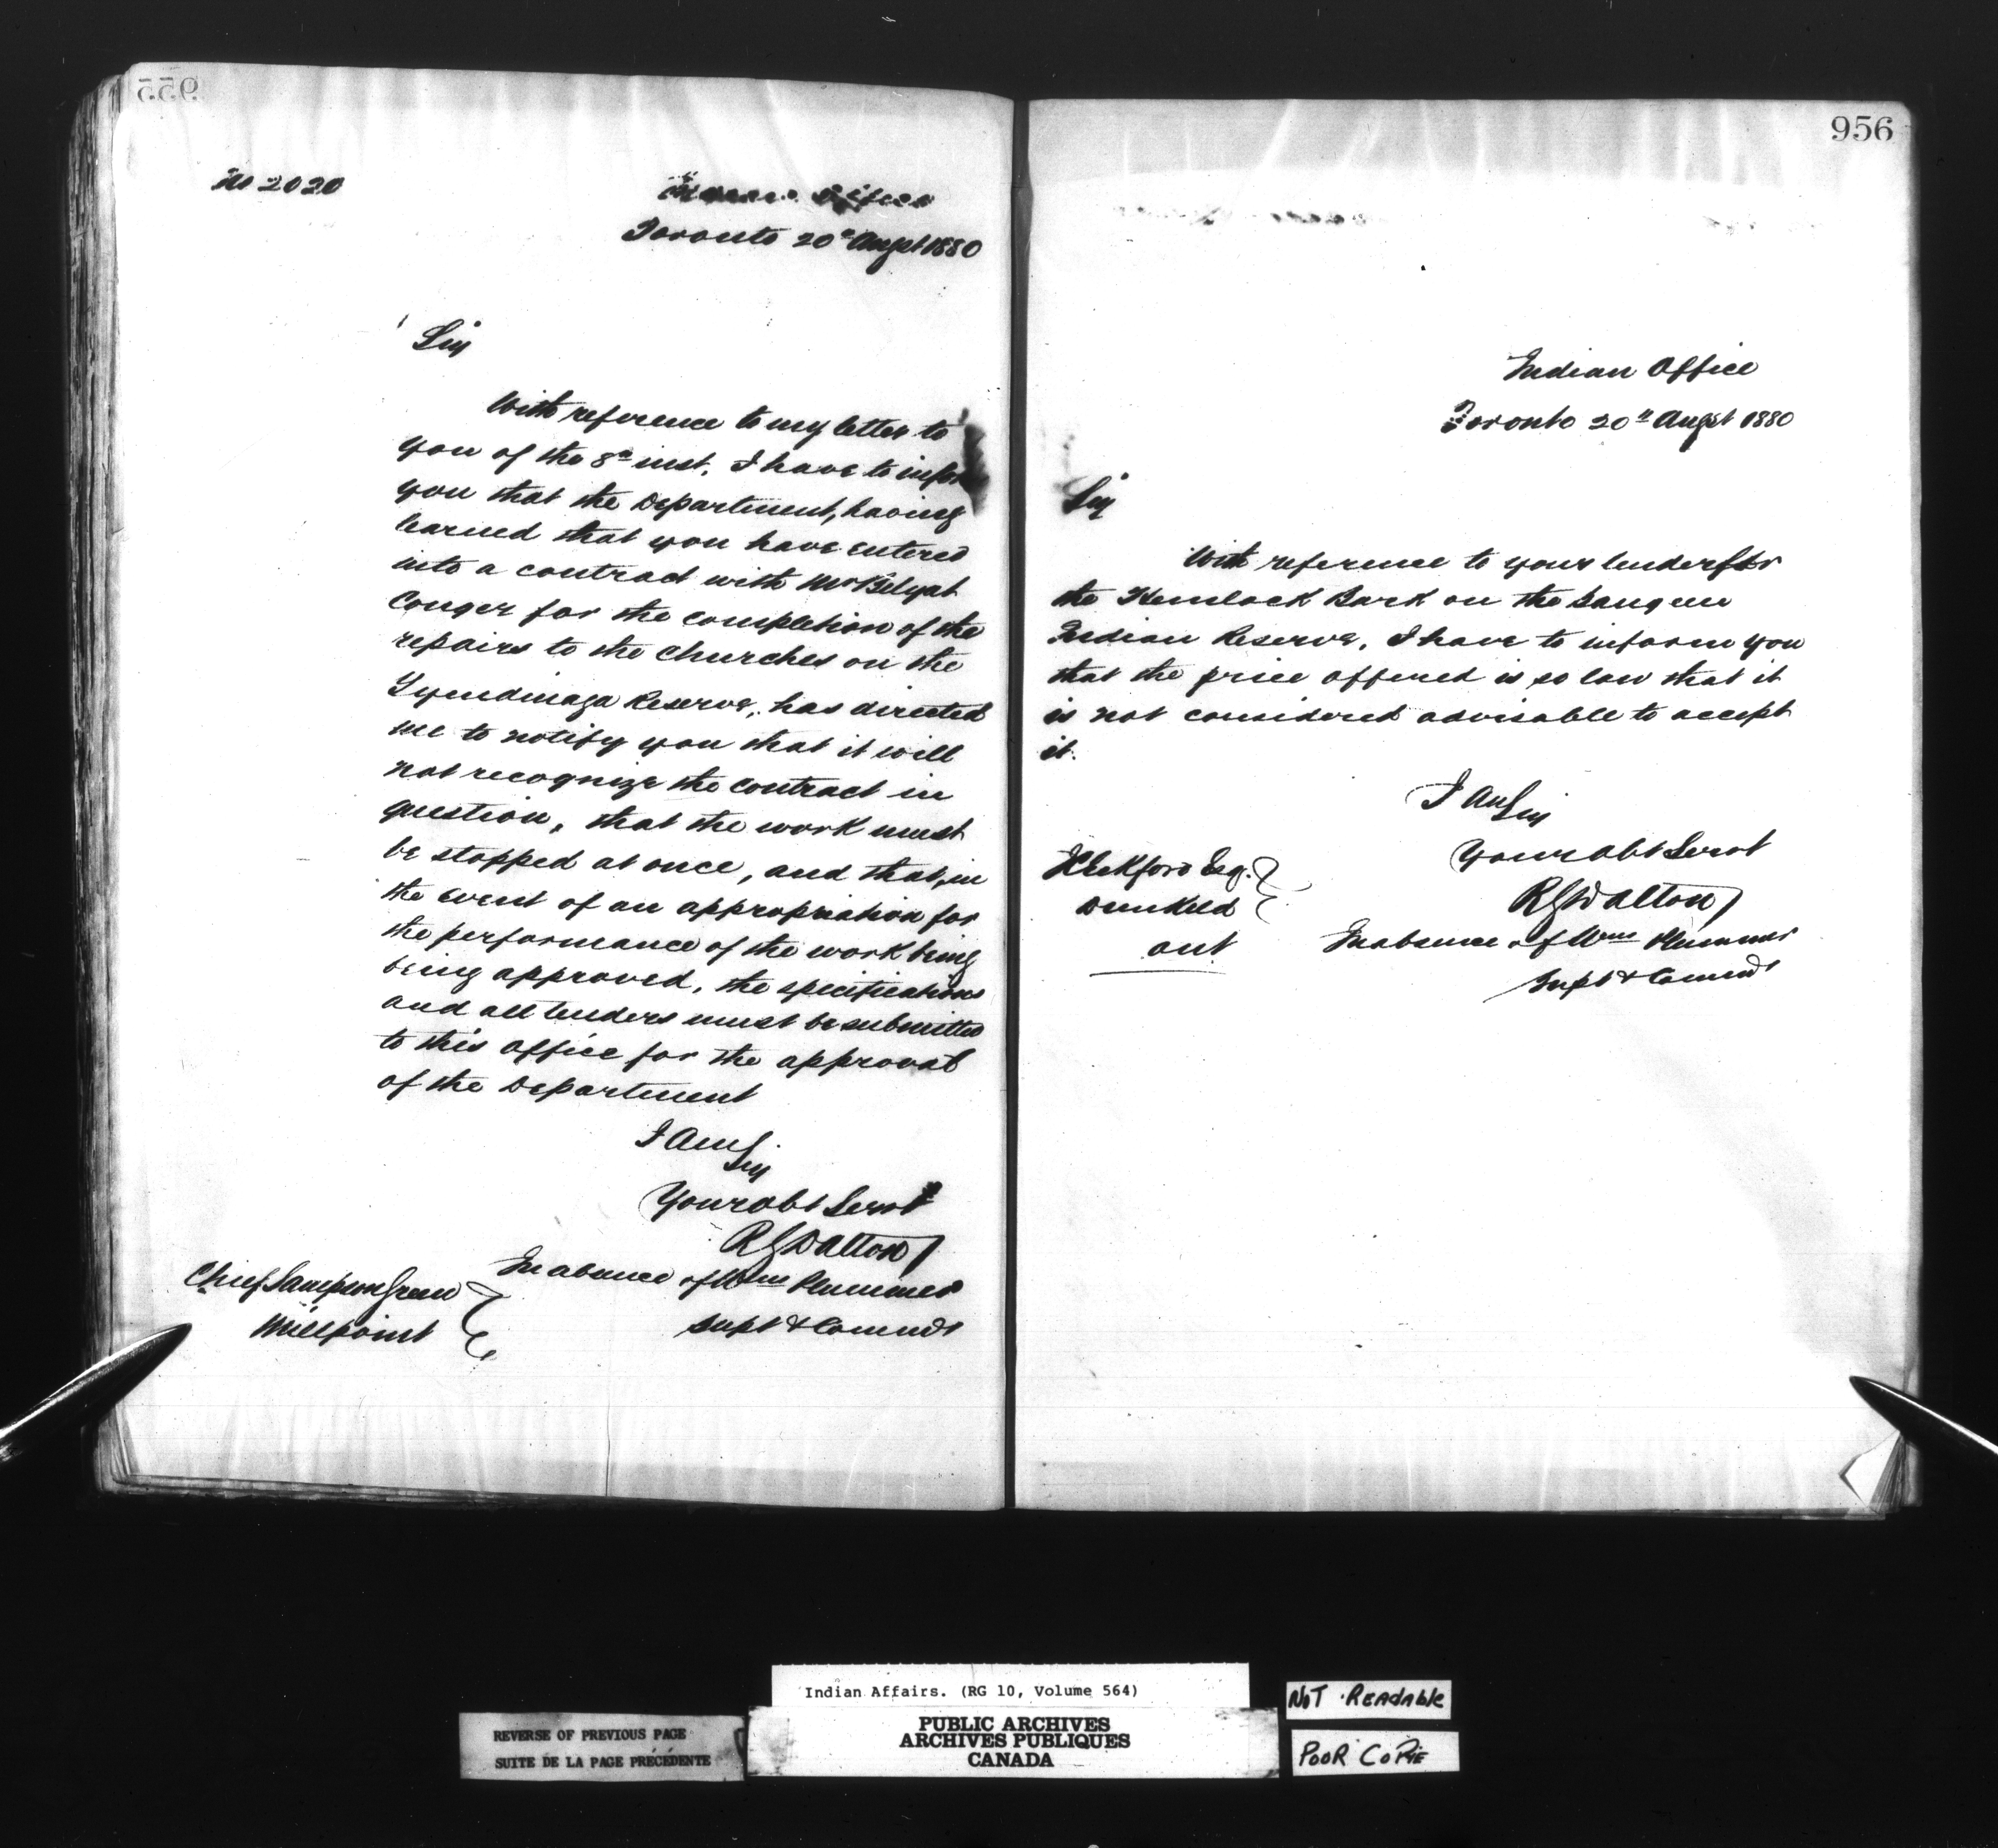 955
No 2020
Indian Office
Toronto 20th Augst 1880
Sir
With reference to my letter to
you of the 8th inst. I have to inform
you that the Department, having
learned that you have entered
into a contract with Mr
Conger for the completion of the
repairs to the Churches on the
Tyendinaga Reserve, has directed
me to notify you that it will
not recognize the contract in
question, that the work must
be stopped at once, and that, in
the event of an appropriation for
the performance of the work being
being approved, the specifications
and all tenders must be submitted
to this office for the approval
of the Department
I Am
Sir
Your obt Servt
RGDalton
In absence of Wm Plummer
Supt & Commr
Chief Sampson Green
Millpoint
956
Indian Office
Toronto 20th Augst 1880
Sir
With reference to your tender for
the Hemlock Bark on the Saugeen
Indian Reserve, I have to inform you
that the price offered is so low that it
is not considered advisable to accept
it.
I Am
Sir
Your obt Servt
RGDalton
In absence of Wm Plummer
Supt & Commr
Esq.
Dunkeld
ont
Indian Affairs. (RG 10, Volume 564)
PUBLIC ARCHIVES
ARCHIVES PUBLIQUES
CANADA
REVERSE OF PREVIOUS PAGE
SUITE DE LA PAGE PRÉCÉDENTE
NOT READABLE
POOR COPIE